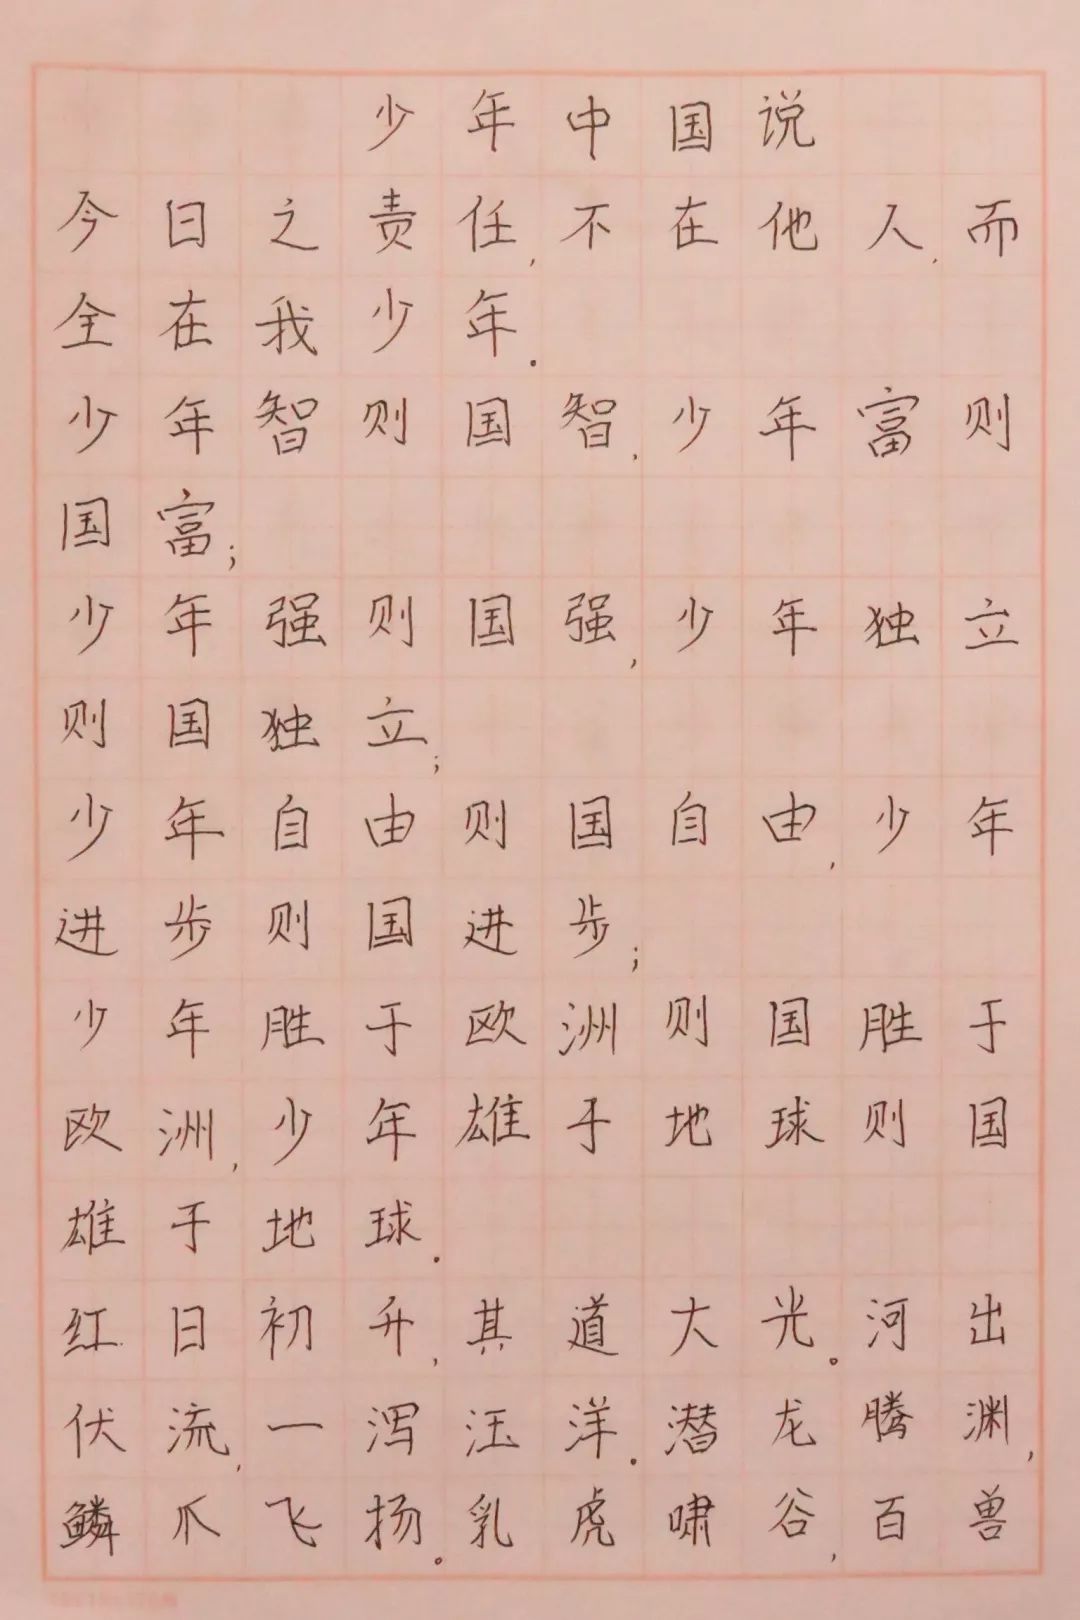 少年中国说
今日之责任,不在他人,而
全在我少年.
少年智则国智,少年富则
国富;
少年强则国强,少年独立
则国独立;
少年自由则国自由,少年
进步则国进步;
少年胜于欧洲则国胜于
欧洲,少年雄于地球则国
雄于地球.
红日初升,其道大光。河出
伏流,一泻汪洋.潜龙腾渊,
鳞爪飞扬。乳虎啸谷,百兽